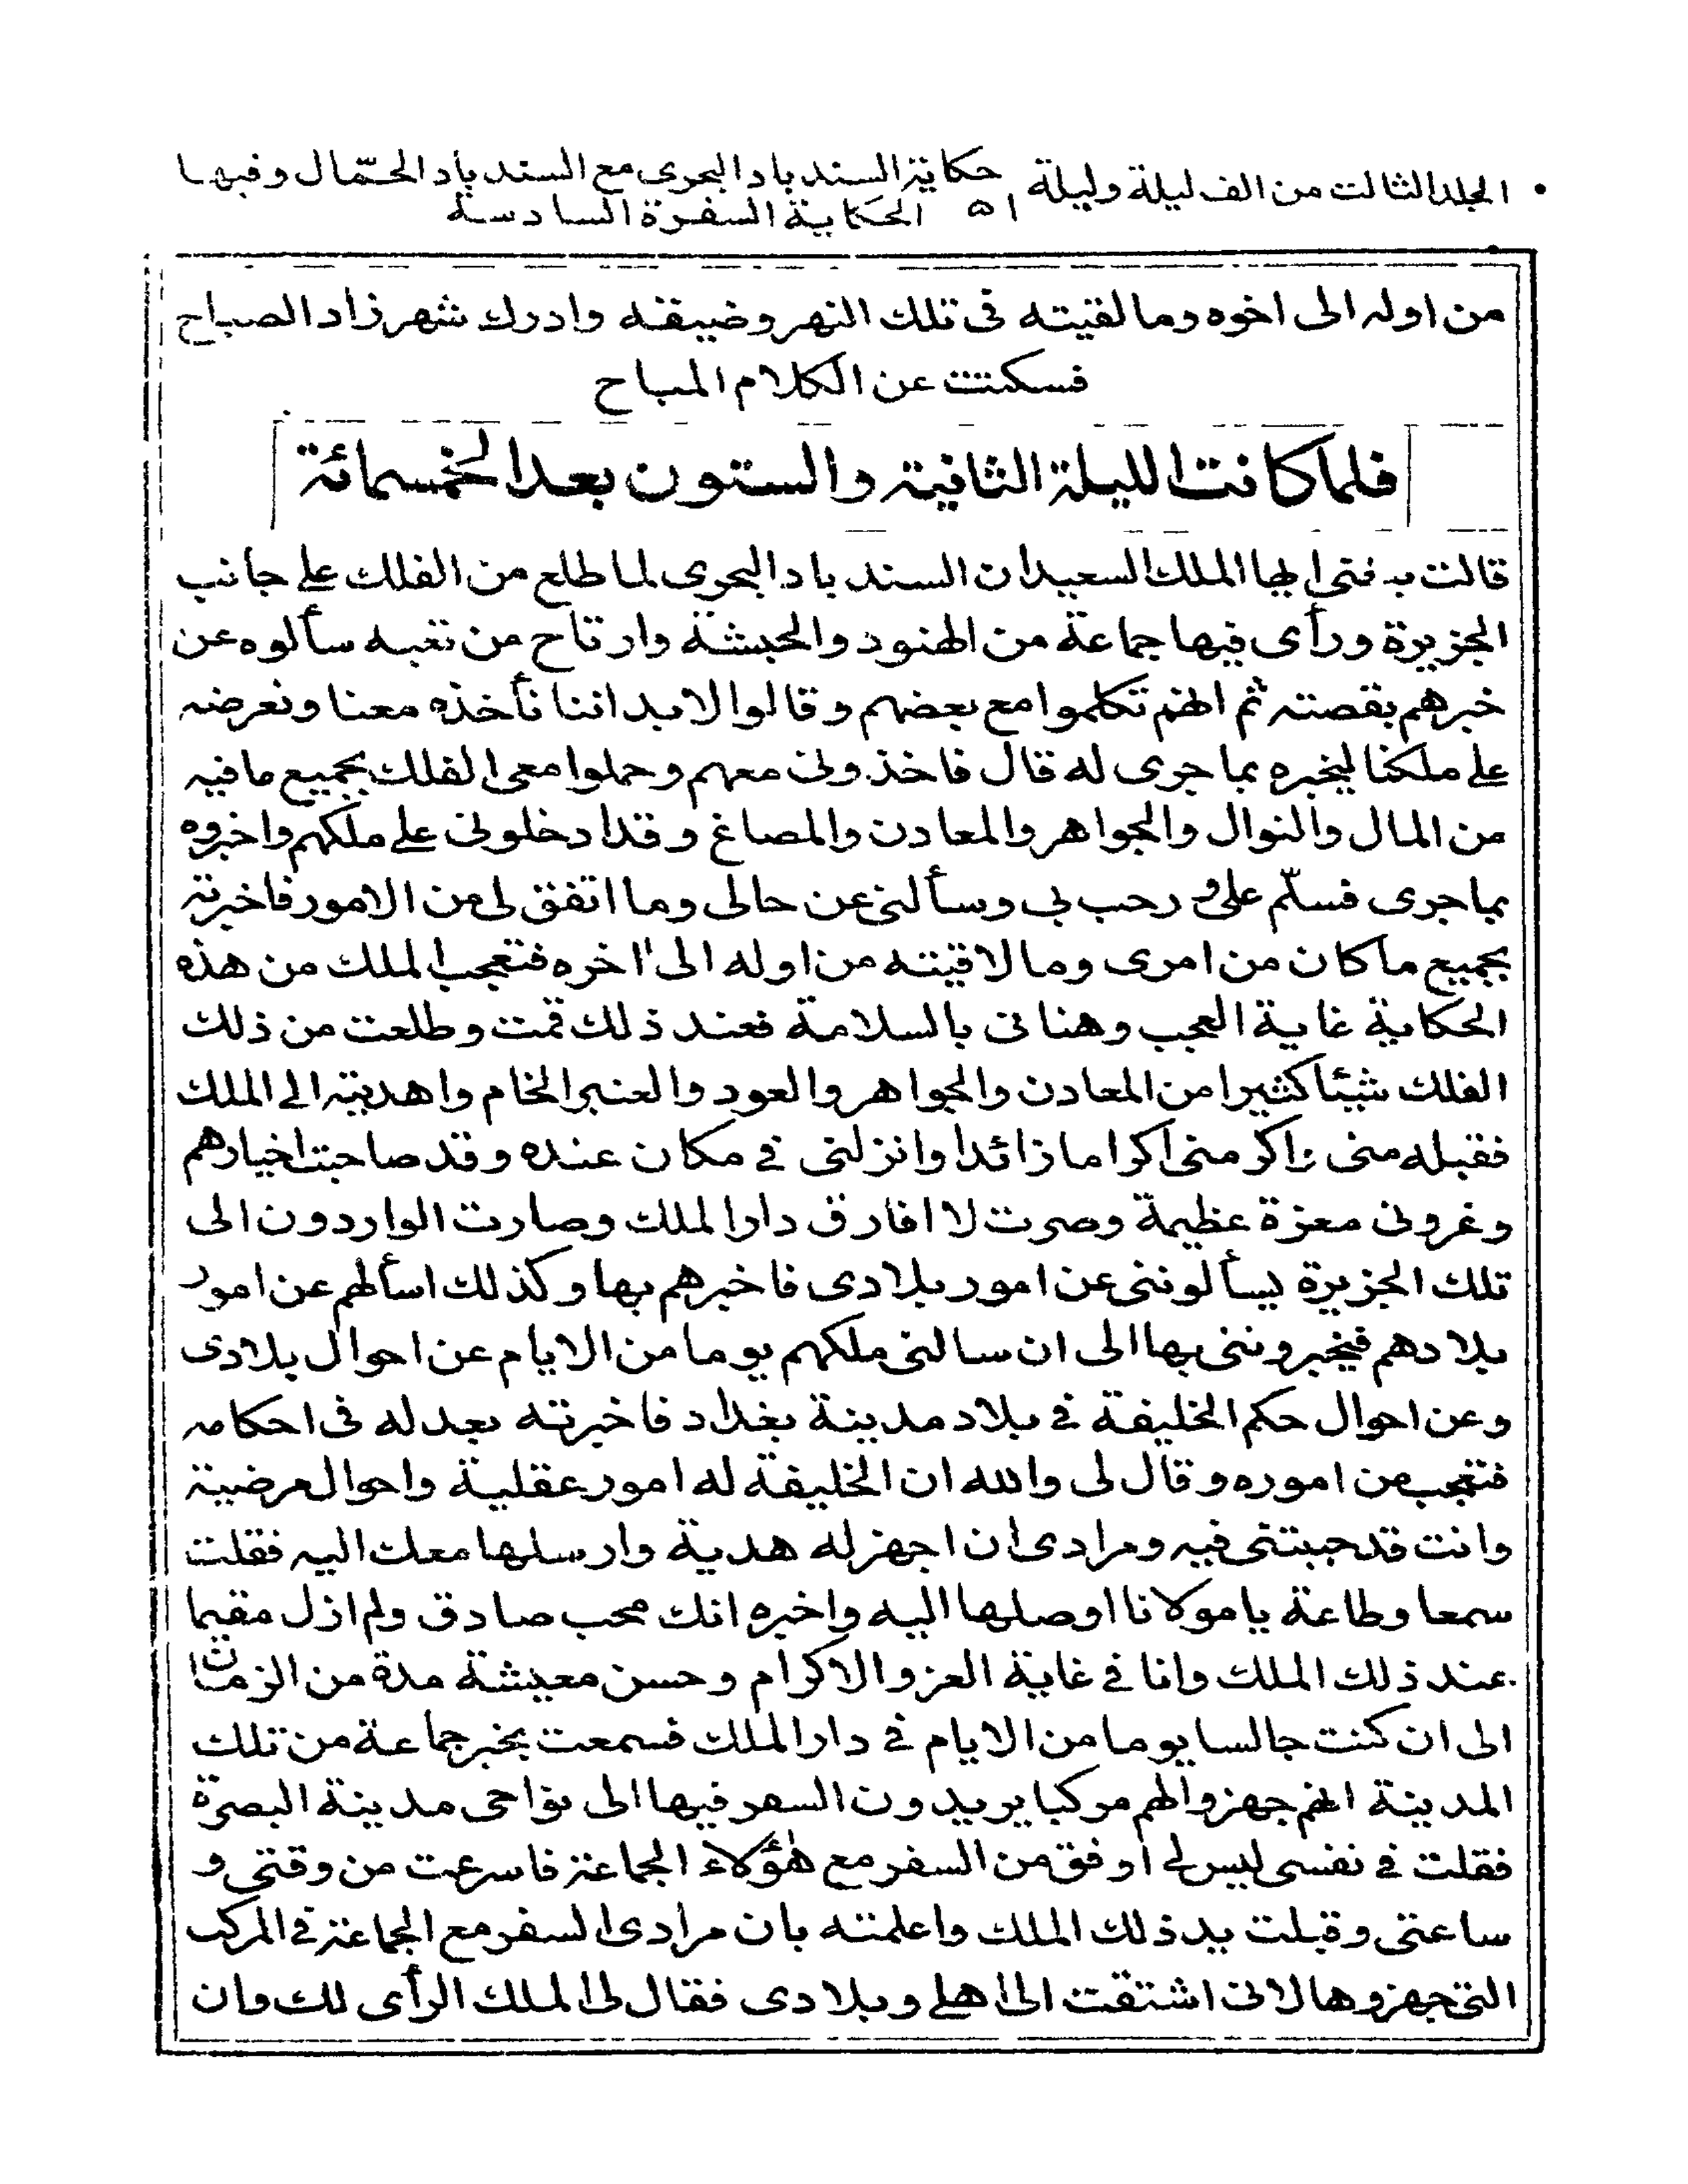 المجلد الثالث من الف ليلة وليلة ٥١ حكاية السندباد البحرى مع السندباد الحمّال وفيها
الحكاية السفرة السادسة
من اوله الى اخره وما لقيته فى تلك النهر وضيقه وادرك شهرزاد الصباح
فسكتت عن الكلام المباح
فلما كانت الليلة الثانية والستون بعد الخمسمائة
قالت بلغنى ايها الملك السعيد ان السندباد البحرى لما طلع من الفلك على جانب
الجزيرة ورأى فيها جماعة من الهنود والحبشة وارتاح من تعبه سألوه عن
خبره بقصته ثم انهم تكلموا مع بعضهم وقالوا لابد اننا نأخذه معنا ونعرضه
على ملكنا ليخبره بما جرى له قال فاخذونى معهم وحملوا معى الفلك بجميع ما فيه
من المال والنوال والجواهر والمعادن والمصاغ وقد ادخلونى على ملكهم واخبروه
بما جرى فسلّم علىّ ورحب بى وسألنى عن حالى وما اتفق لى من الامور فاخبرته
بجميع ما كان من امرى وما لاقيته من اوله الى اخره فتعجب الملك من هذه
الحكاية غاية العجب وهنانى بالسلامة فعند ذلك قمت وطلعت من ذلك
الفلك شيئا كثيرا من المعادن والجواهر والعود والعنبر الخام واهديته الى الملك
فقبله منى واكرمنى اكراما زائدا وانزلنى فى مكان عنده وقد صاحبت اخيارهم
وعزونى معزة عظيمة وصرت لا افارق دار الملك وصارت الواردون الى
تلك الجزيرة يسألوننى عن امور بلادى فاخبرهم بها وكذلك اسألهم عن امور
بلادهم فيخبروننى بها الى ان سالنى ملكهم يوما من الايام عن احوال بلادى
وعن احوال حكم الخليفة فى بلاد مدينة بغداد فاخبرته بعدله فى احكامه
فتعجب من اموره وقال لى والله ان الخليفة له امور عقلية واحوال مرضية
وانت قد حببتنى فيه ومرادى ان اجهز له هدية وارسلها معك اليه فقلت
سمعا وطاعة يا مولانا اوصلها اليه واخبره انك محب صادق ولم ازل مقيما
عند ذلك الملك وانا فى غاية العز والاكرام وحسن معيشة مدة من الزمان
الى ان كنت جالسا يوما من الايام فى دار الملك فسمعت بخبر جماعة من تلك
المدينة انهم جهزوا لهم مركبا يريدون السفر فيها الى نواحى مدينة البصرة
فقلت فى نفسى ليس لى اوفق من السفر مع هؤلاء الجماعة فاسرعت من وقتى و
ساعتى وقبلت يد ذلك الملك واعلمته بان مرادى السفر مع الجماعة فى المركب
التى جهزوها لانى اشتقت الى اهلى وبلادى فقال لى الملك الرأى لك وان